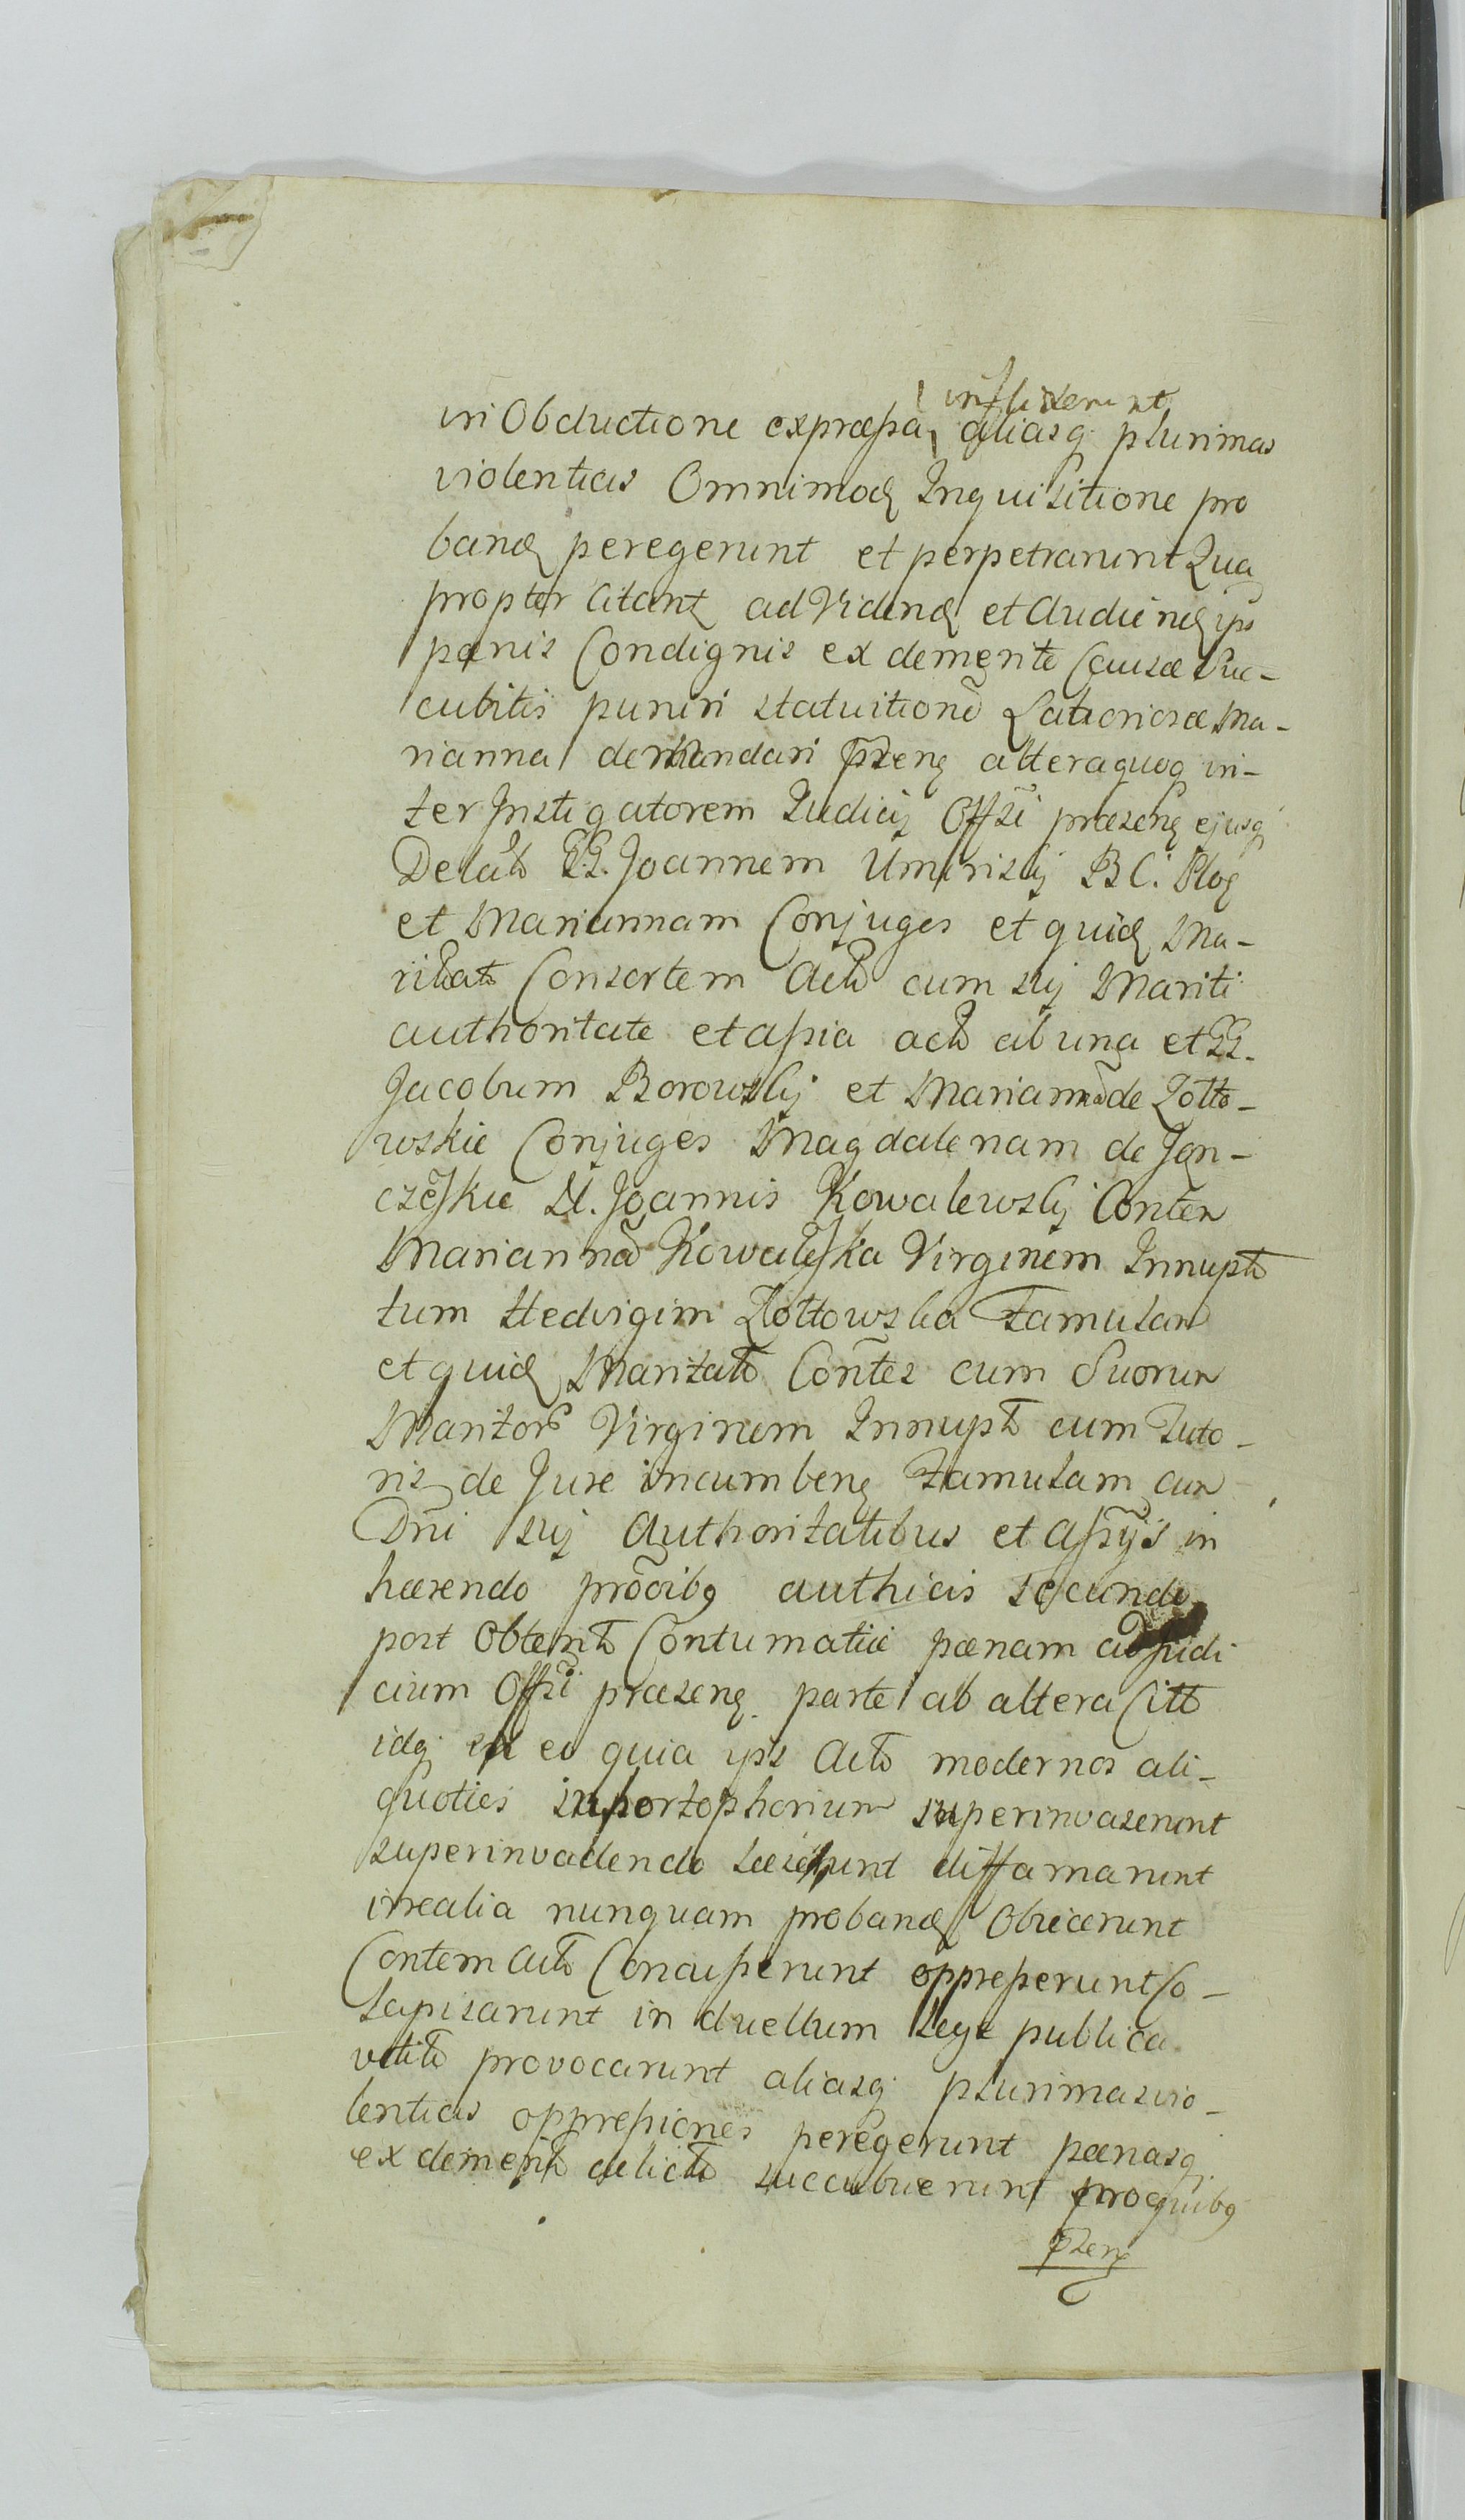 inflixerunt
in Obductione expressa, aliasq plurimas
violentias Omnimod Inquisitione pro
band peregerunt et perpetrarunt Qua
propter Citant ad Vidend et Audiend ips
pænis Condignis ex demerito Causæ Suc-
cubitis puniri statuitionē Ma-
rianna demandari Przeng altera quoq in-
ter Instigatorem Judicij Offsi præseng ejusq
Delato GG. Joannem Uminskij B C. Plog
et Mariannam Conjuges et quid Ma-
ritato Consortem Acto cum sui Mariti
authoritate et assia acto ab una et GG.
Jacobum Borowskij et Mariannā de Zolto-
wskie Conjuges Magdalenam de Jon-
czeskie N. Joannis Kowalewskij Contem
Mariannā Kowaleska Virginem Innupto
tum Hedvigim Zoltowska Famulam
et quid Maritato Contes cum Suorum
Maritor Virginem Innupto cum Tuto-
ris de Jure incumbeng Famulam cum
Dni sui Authoritatibus et assys in
hærendo prōoibq authicis secundo
post Obtento Contumatiæ pænam ad judi
cium Offsi præseng parte ab altera Citto
idq ex eo quia ips Acto modernos ali-
quoties superinvaserunt
superinvadendo læserunt diffamarunt
irrealia nunquam proband Obiicerunt
Contem Acto Concusserunt oppresserunt Co-
lapisarunt in duellum lege publica
vetito provocarunt aliasq plurimas vio-
lentias oppressiones peregerunt pænasq
ex demerito delicto succubuerunt pro quibq
Przeng